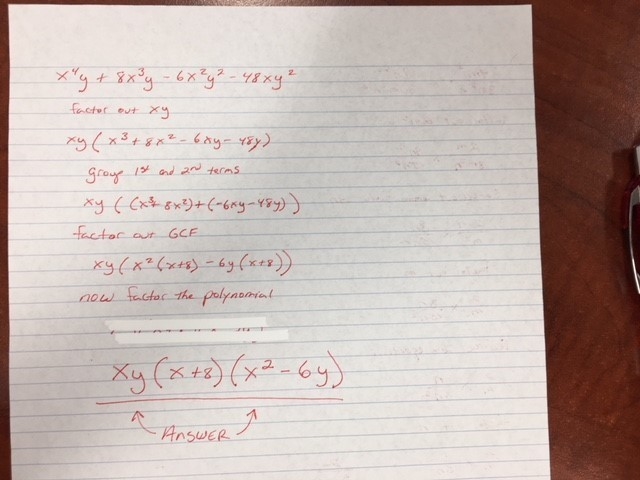 x⁴y + 8x³y - 6x²y² - 48xy²
factor out xy
xy ( x³ + 8x² - 6xy - 48y)
group 1st and 2nd terms
xy ( (x³+ 8x²)+(-6xy-48y) )
factor out GCF
xy ( x² (x+8) - 6y (x+8))
now factor the polynomial
xy (x+8) (x² - 6y)
ANSWER